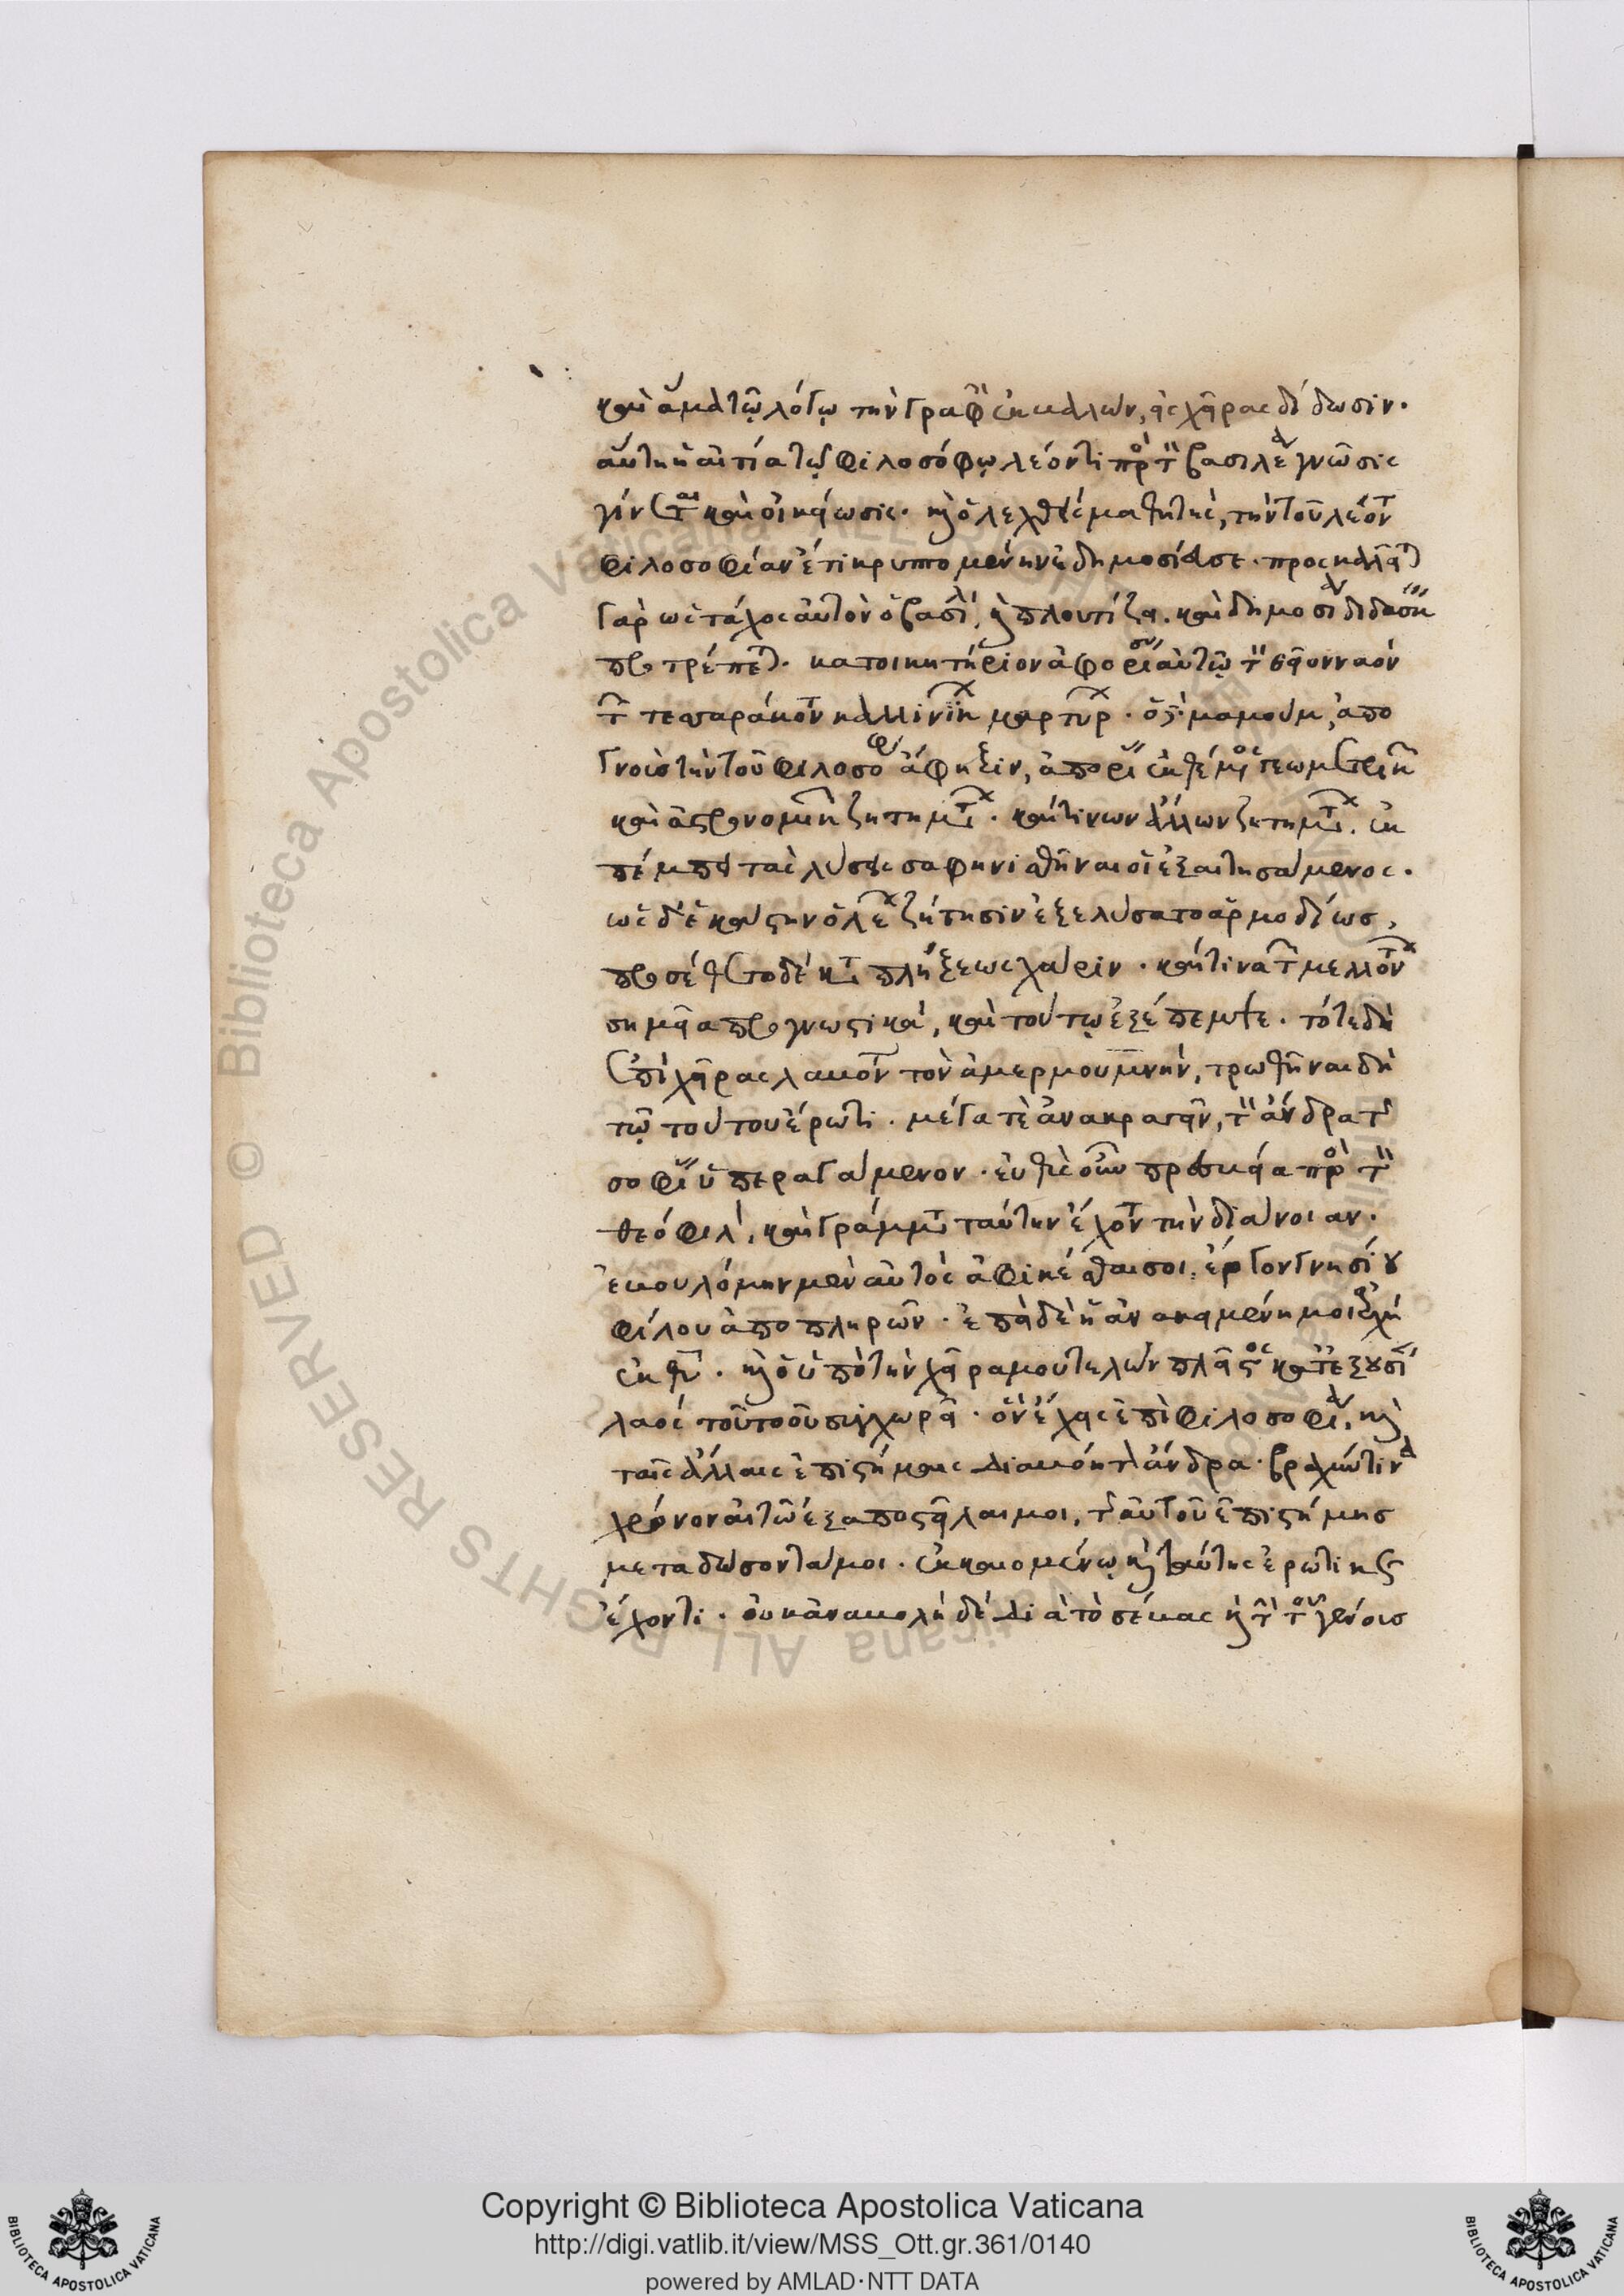 καὶ ἅμα τῷ λόγῳ τὴν γραφὴν ἐκβαλὼν, εἰς χεῖρας δίδωσιν.
αὕτη ἡ αἰτία τῷ φιλοσόφῳ λέοντι πρὸς τὸν βασιλέα γνῶσις
γίνεται καὶ οἰκείωσις. καὶ ὁ λεχθεὶς μαθητὴς, τὴν τοῦ λέοντος
φιλοσοφίαν ἔτι κρυπτομένην ἐδημοσίευσε. προσκαλεῖται
γὰρ ὡς τάχος αὐτὸν ὁ βασιλεὺς, καὶ πλουτίζει. καὶ δημοσίᾳ διδάσκειν
προτρέπεται. κατοικητήριον ἀφορίσας αὐτῷ τὸν θεῖον ναὸν
τῶν τεσσαράκοντα καλλινίκων μαρτύρων. ὁ δὲ μαμοὺμ, ἀπο
γνοὺς τὴν τοῦ φιλοσόφου ἄφηξιν, ἀπορίας ἐκθέμενος γεωμετρικῶν
καὶ ἀστρονομικῶν ζητημάτων. καί τινων ἄλλων ζητημάτων. ἐκ
πέμπει τὰς λύσεις σαφηνισθῆναι οἱ ἐξαιτησάμενος.
ὡς δ' ἑκάστην ὁ λέων ζήτησιν ἐξελύσατο ἁρμοδίως,
προσέθετο δὲ καταπλήξεως χάριν. καί τινα τῶν μελλόντων
σημεῖα προγνωστικὰ, καὶ τούτῳ ἐξέπεμψε. τότε δὴ
ἐπὶ χεῖρας λαβόντα τὸν ἀμερμουμνὴν, τρωθῆναι δὴ
τῷ τούτου ἔρωτι. μέγα τὲ ἀνακραγεῖν, τὸν ἄνδρα τῆς
σοφίας ὑπεραγάμενον. εὐθὺς οὖν πρέσβεια πρὸς τὸν
θεόφιλον, καὶ γράμματα ταύτην ἔχοντα τὴν διάνοιαν.
ἐβουλόμην μὲν αὐτὸς ἀφικέσθαι σοι, ἔργον γνησίου
φίλου ἀποπληρῶν. ἐπεὶ δὲ ἡ ἀνακειμένη μοι ἀρχὴ
ἐκ θεοῦ. καὶ ὁ ὑπὸ τὴν χεῖρά μου τελῶν πλεῖστος κατεξουσίαν
λαὸς τοῦτο οὐ συγχωρεῖ. ὃν ἔχεις ἐπὶ φιλοσοφίᾳ, καὶ
ταῖς ἄλλαις ἐπιστήμαις διαβόητον ἄνδρα. βραχύν τινα
χρόνον αἰτῶ ἐξαποστεῖλαί μοι, τῆς αὐτοῦ ἐπιστήμης
μεταδώσοντά μοι. ἐκκαιομένῳ καὶ ταύτης ἐρωτικῶς
ἔχοντι. οὐκ ἀναβολὴ δὲ διὰ τὸ σέβας καὶ τὴν τοῦ γένους